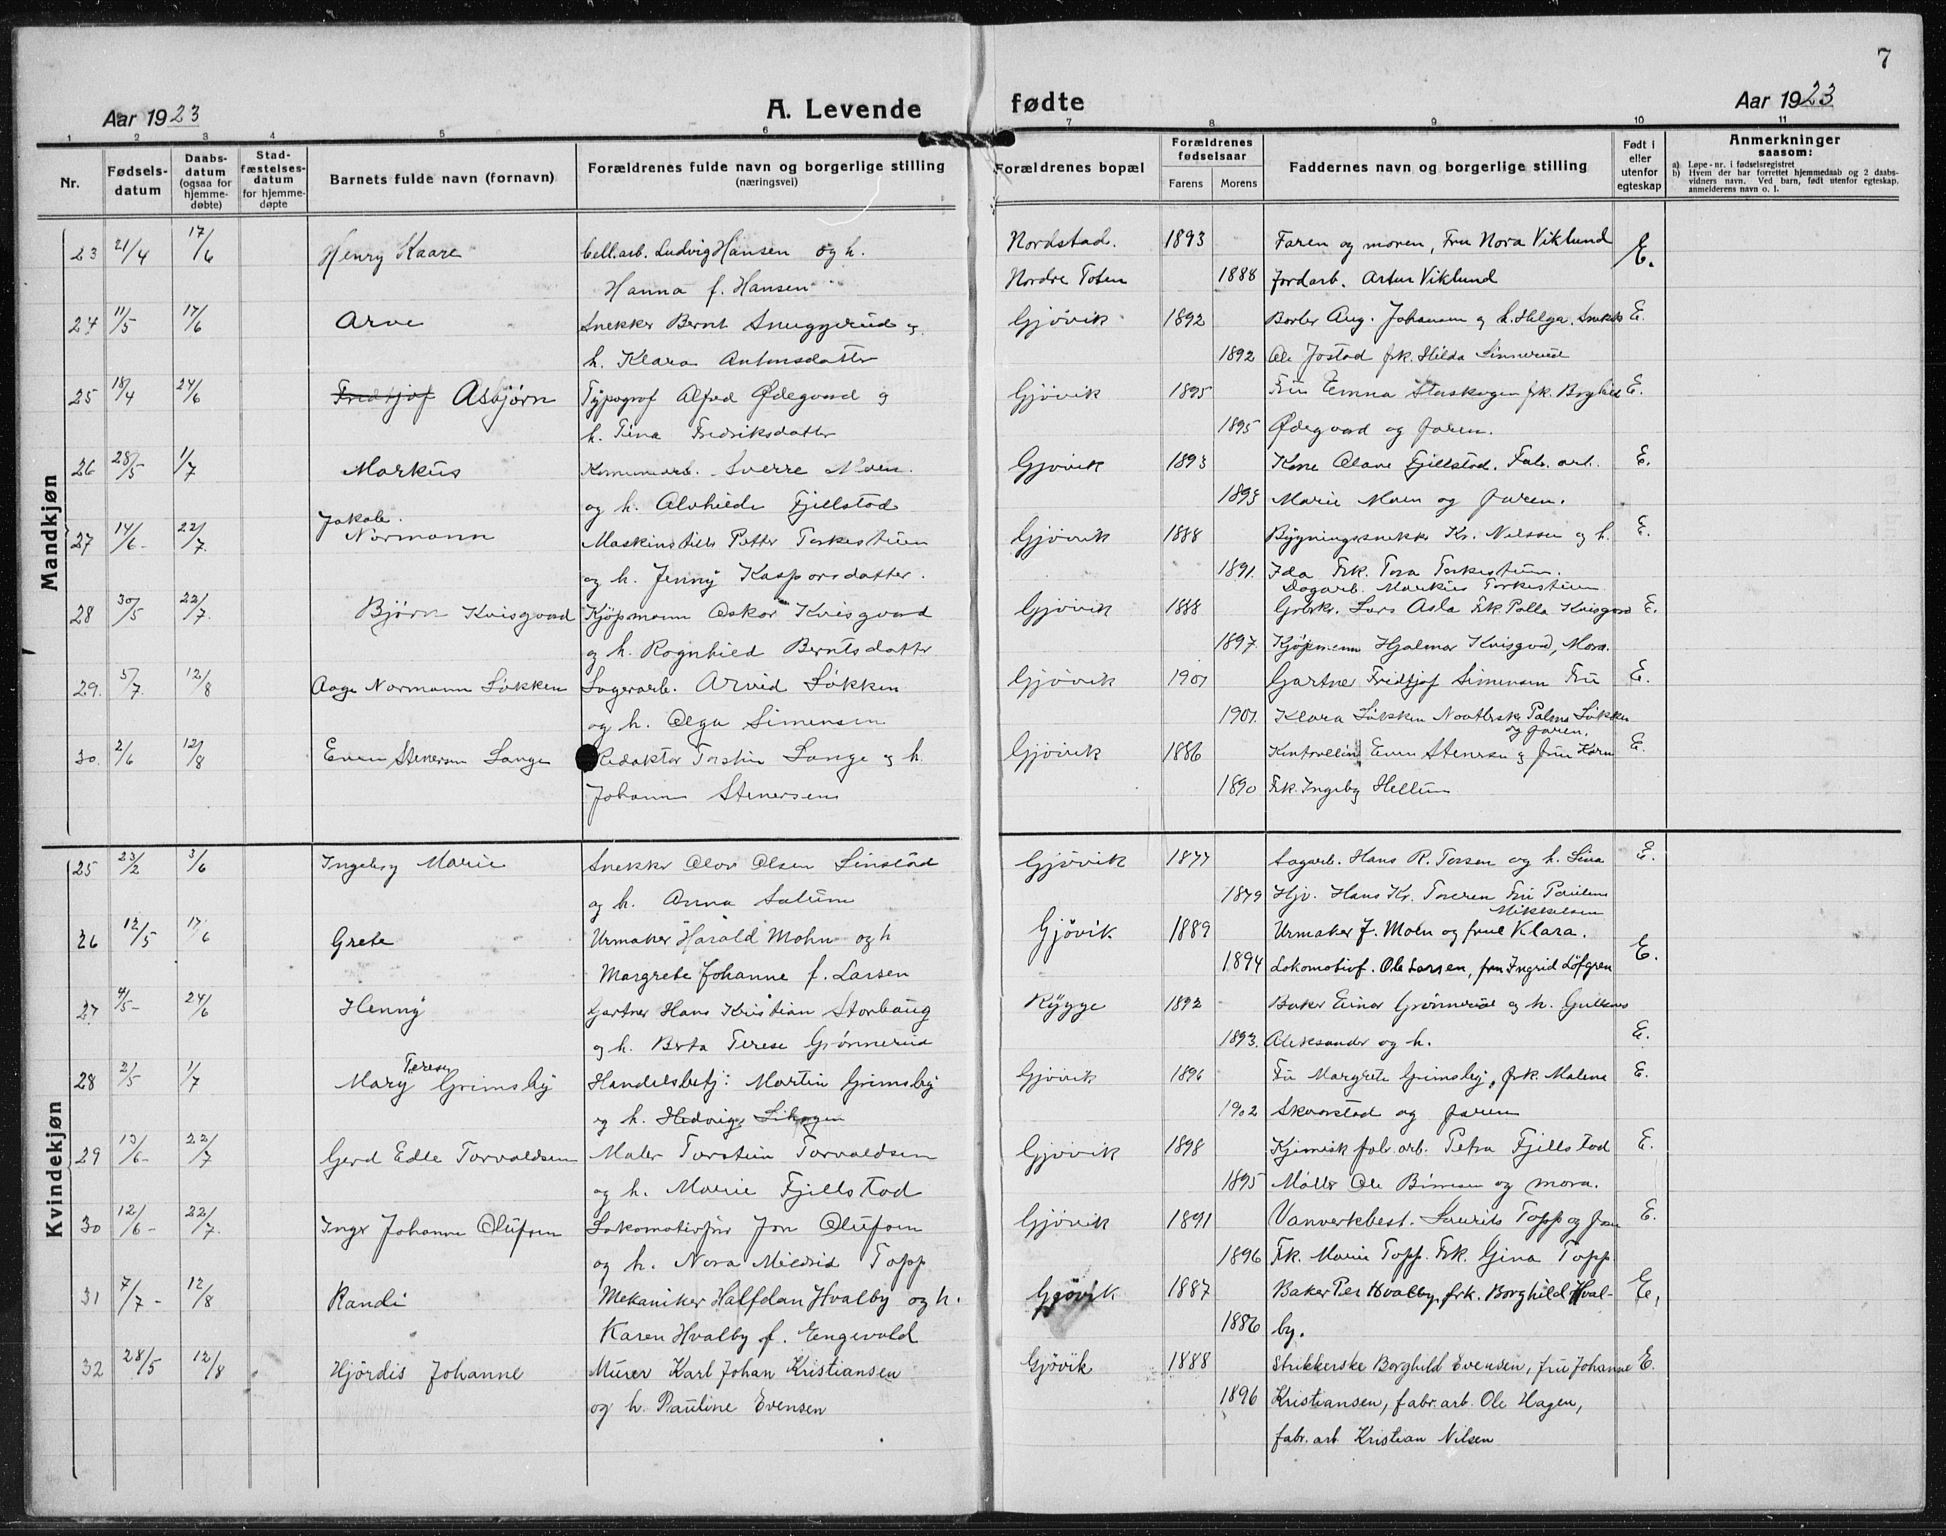 7
Aar 1923
A. Levende fødte
Aar 1923
1 2 3 4 5 6 7 8 9 10 11
Nr.
Fødsels-datum
Daabs-datum (ogsaa for hjemme-døbte)
Stad-fæstelses-datum for hjemme-døpte
Barnets fulde navn (fornavn)
Forældrenes fulde navn og borgerlige stilling (næringsvei)
Forældrenes bopæl
Forældrenes fødselsaar
Farens Morens
Faddernes navn og borgerlige stilling
Født i eller utenfor egteskap
Anmerkninger saasom:
a) Løpe-nr. i fødselsregistret
b) Hvem der har forrettet hjemmedaab og 2 daabs-vidners navn. Ved barn, født utenfor egteskap, anmelderens navn o. l.
Mandkjøn
23 21/4 17/6 Henry Kaare Cell.arb. Ludvig Hansen og h. Nordstad. 1893 Faren og moren, Fru Nora Viklund E.
Hanna f. Hansen Nordre Toten 1888 Jordarb. Artur Viklund
24 11/5 17/6 Arve Snekker Bernt Snuggerud og Gjøvik 1892 Aug. Johansen og h. Helga. E.
h. Klara Antonsdatter 1892 Ole Jostad frk. Hilda Linnerud
25 18/4 24/6 Fridtjof Asbjørn Typograf Alfred Ødegaard og Gjøvik 1895 Fru Emma frk. Borghild E.
h. Tina Fredriksdatter 1895 Ødegaard og faren.
26 28/5 1/7 Markus Komunearb. Sverre Moen Gjøvik 1893 Kone Olave Fjellstad. Fab. arb. E.
og h. Alvhilde Fjellstad 1893 Marie Moen og faren.
27 14/6 22/7 Jakob Normann Maskinstills Petter Torkestuen Gjøvik 1888 Bygningssnekk Kr. Nilssen og h. E.
og h. Jenny Kasporsdatter. 1891. Ida Frk. Tora Torkestuen.
Dagarb. Markus Torkestuen
28 30/5 22/7. Bjørn Kvisgaard Kjøpmann Oskar Kvisgaard Gjøvik 1888 Lars Asla Frk. Palla Kvisgaard E.
og h. Rognhild Berntsdatter 1897. Kjøpmann Hjalmar Kvisgaard, Mora.
29. 5/7. 12/8 Aage Normann Løkken Lagerarb. Arvid Løkken Gjøvik 1901 Gartner Fridtjof Simensen Fru E.
og h. Olga Simensen 1901. Klara Løkken Palma Løkken
og faren.
30. 2/6 12/8 Even Stenersen Lange Redaktør Torstein Lange og h. Gjøvik 1886 Even Stenersen og fru Karen E.
Johanne Stenersen 1890 Frk. Ingeborg Hellum
Kvindekjøn
25 23/2 3/6 Ingeborg Marie Snekker Olav Olsen Linstad Gjøvik 1877 Sagarb. Hans R. Torsen og h. Lina E.
og h. Anna Salum 1879 Hjv. Hans Kr. Fru Pauline
Mikkelsen
26 12/5 17/6 Grete Urmaker Harald Mohn og h Gjøvik 1889 Urmaker J. Mohn og frue Klara.
Margrete Johanne f. Larsen 1894 Lokomotivf. Ole Larsen, fru Ingrid Löfgren E.
27 4/5 24/6 Henny Gartner Hans Kristian Storbaug Rygge 1892 Baker Einar Grønnerud og h.
og h. Berta Terese Grønnerud 1893. Aleksander og h. E.
28 2/5 1/7 Mary Terese Grimsby Handelsbetj: Martin Grimsby Gjøvik 1896 Fru Margrete Grimsby, frk. Malene E.
og h. Hedvig 1902 Skvarstad og faren
29 13/6 22/7 Gerd Edle Torvaldsen Maler Torstein Torvaldsen Gjøvik 1898 Kjemisk fabr. arb. Petra Fjellstad E.
og h. Marie Fjellstad 1895 Møller Ole og mora.
30 12/6 22/7. Inger Johanne Olufsen Lokomotivfyr Jon Olufsen Gjøvik 1891 Vanverkbest. Laurits Topp og frue E.
og h. Nora Mildrid Topp 1896 Frk. Marie Topp. Frk. Gina Topp.
31 7/7 12/8 Randi Mekaniker Halfdan Hvalby og h. Gjøvik 1887 Baker Per Hvalby, frk. Borghild Hval- E.
Karen Hvalby f. Engevold 1886 by.
32 28/5 12/8 Hjördis Johanne Murer Karl Johan Kristiansen Gjövik 1888 Strikkerske Borghild Evensen, fru Johanne E.
og h. Pauline Evensen 1896 Kristiansen, fabr. arb. Ole Hagen,
fabr. arb Kristian Nilsen